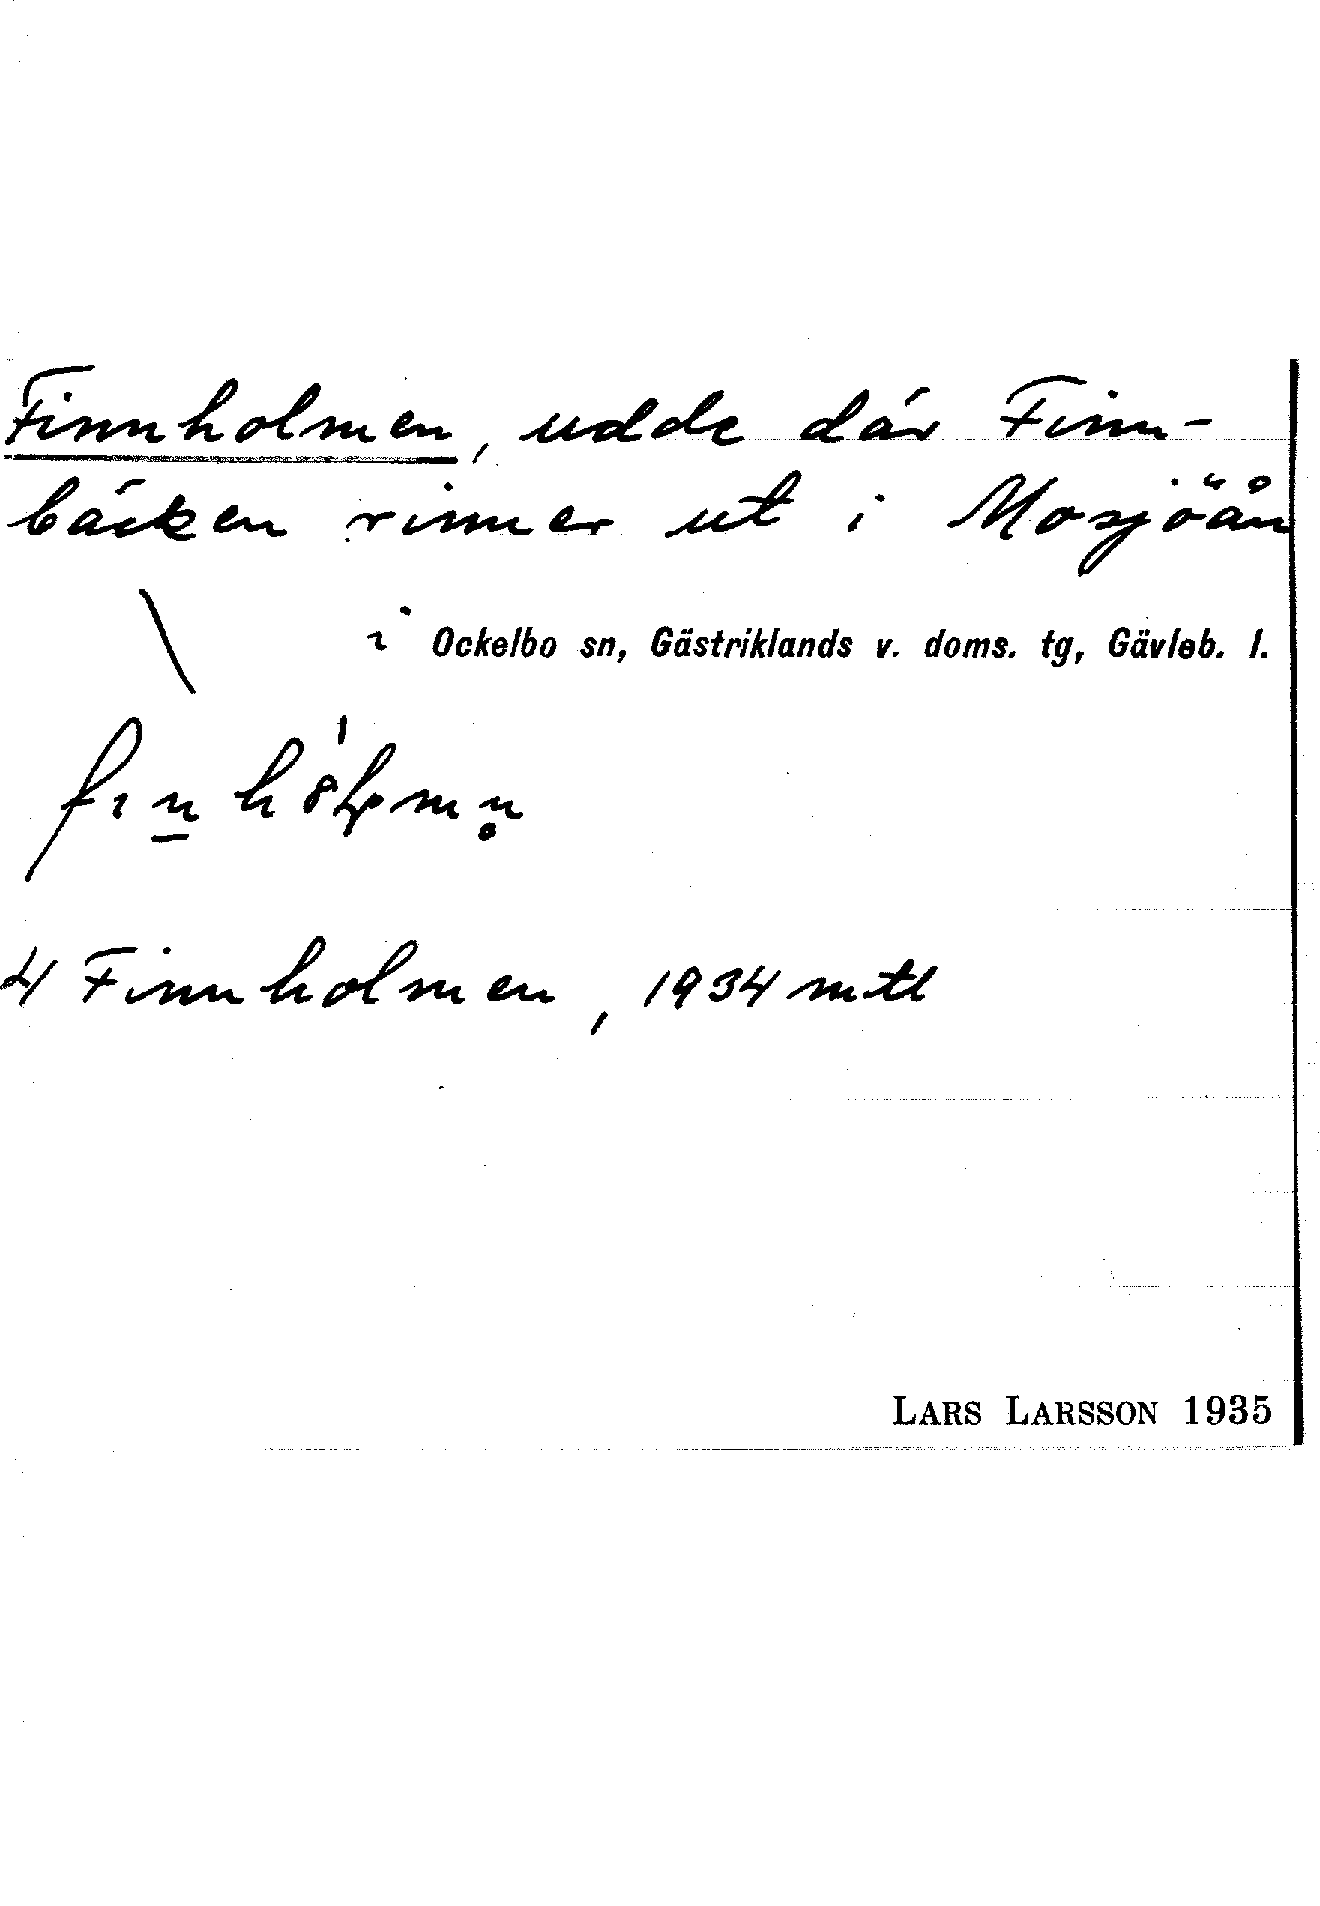 Finnholmen, udde där Finn-
bäcken rinner ut i Mosjöån
i Ockelbo sn, Gästriklands v. doms. tg, Gävleb. l.
4 Finnholmen, 1934 mtl
LARS LARSSON 1935